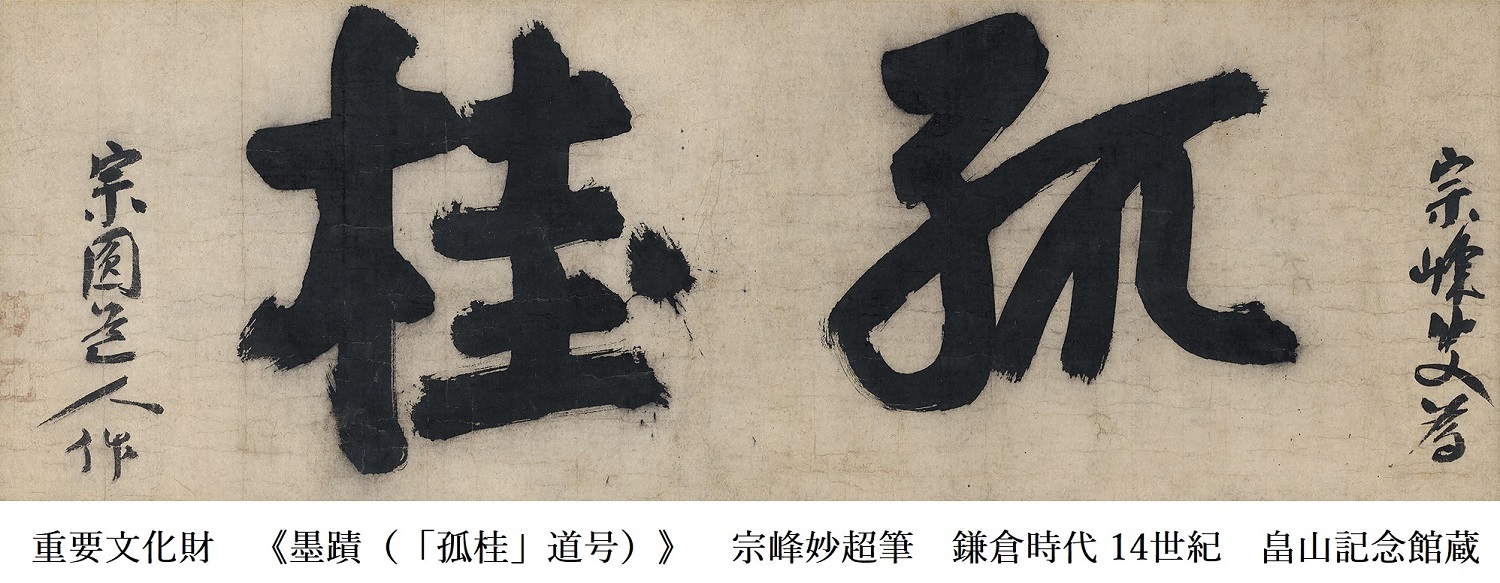 宗峰叟為
孤桂
宗圓道人作
重要文化財　《墨蹟（「孤桂」道号）》　宗峰妙超筆　鎌倉時代 14世紀　畠山記念館蔵